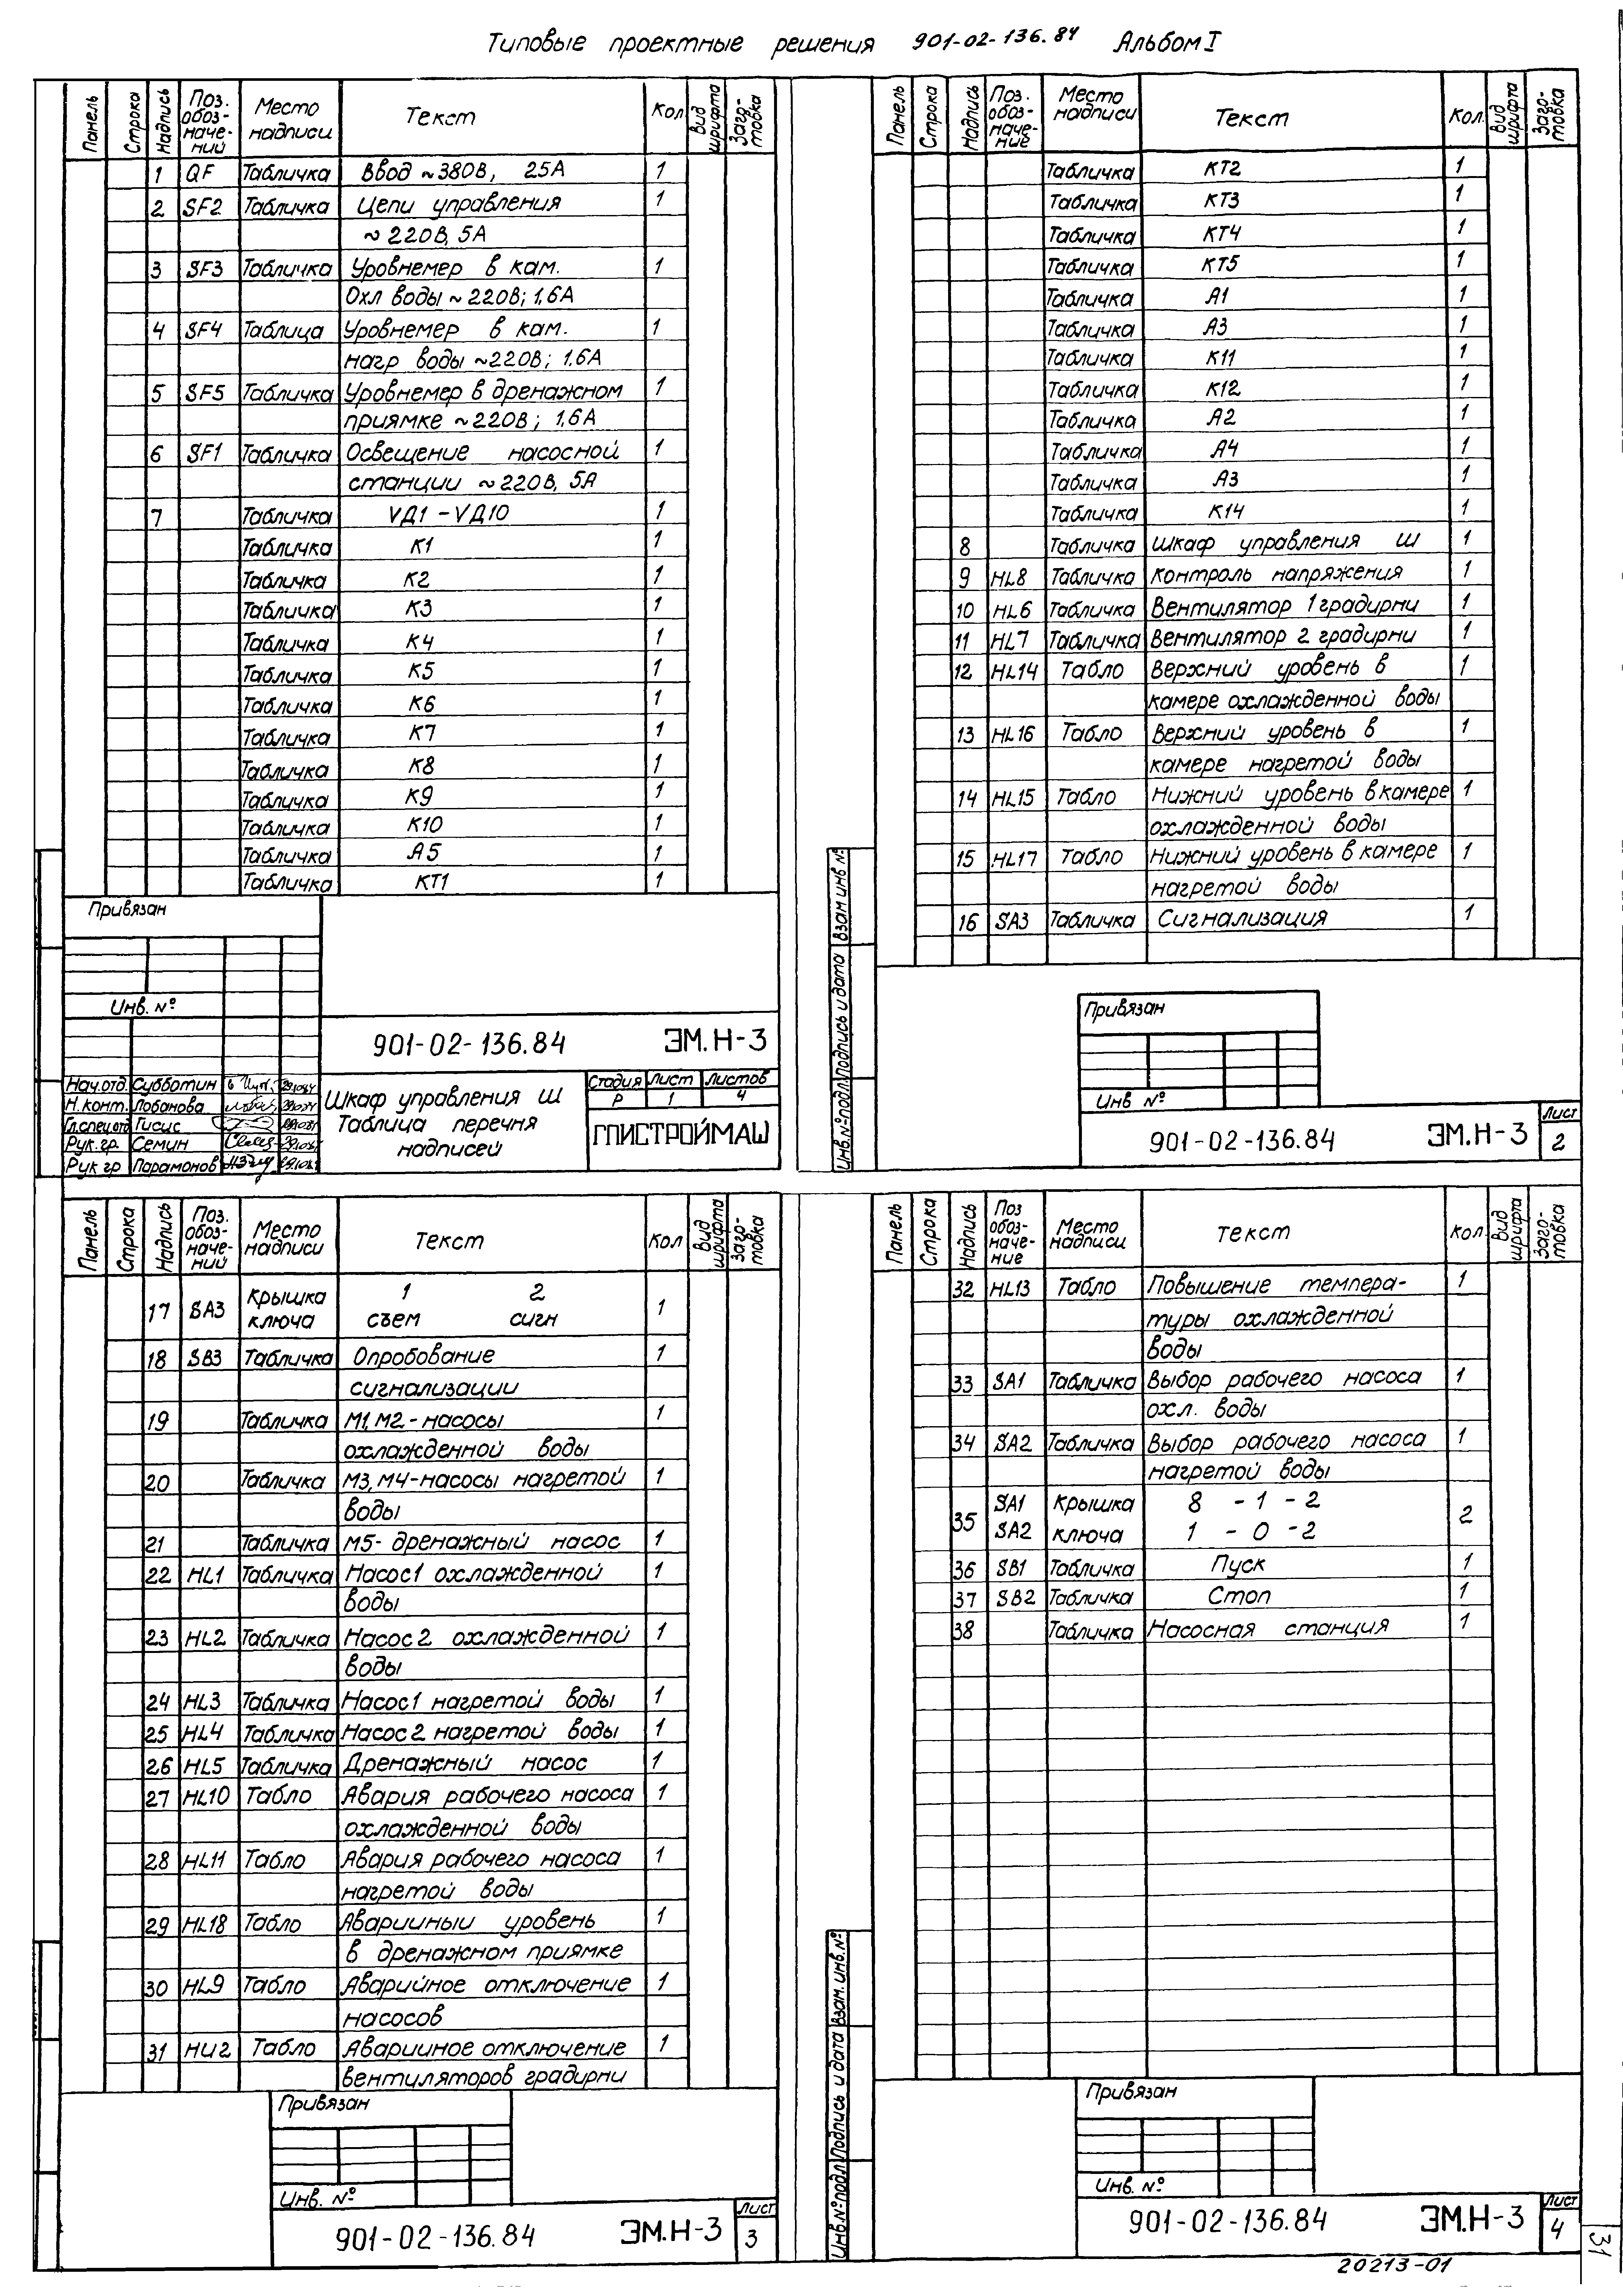 Типовые проектные решения 901-02-136.84 Альбом I
Панель Строка Надпись Поз. обозначений Место надписи Текст Кол Вид шрифта Заготовка
1 QF Табличка Ввод ~380В, 25А 1
2 SF2 Табличка Цепи управления 1
~220В, 5А
3 SF3 Табличка Уровнемер в кам. 1
Охл воды ~220В; 1,6А
4 SF4 Таблица Уровнемер в кам. 1
нагр воды ~220В; 1.6А
5 SF5 Табличка Уровнемер в дренажном 1
приямке ~220В; 1,6А
6 SF1 Табличка Освещение насосной 1
станции ~220В, 5А
7 Табличка VД1-VД10 1
Табличка К1 1
Табличка К2 1
Табличка К3 1
Табличка К4 1
Табличка К5 1
Табличка К6 1
Табличка К7 1
Табличка К8 1
Табличка К9 1
Табличка К10 1
Табличка А5 1
Табличка КТ1 1
Привязан
Инв. №
901-02-136.84 ЭМ.Н-3
Нач.отд. Субботин
Н.конт. Лобанова
Гл.спец.отд Гисис
Рук.гр. Семин
Рук гр Парамонов
Шкаф управления Ш
Таблица перечня
надписей
Стадия Лист Листов
Р 1 4
ГПИСТРОЙМАШ
Панель Строка Надпись Поз. обозначение Место надписи Текст Кол. Вид шрифта Заготовка
Табличка КТ2 1
Табличка КТ3 1
Табличка КТ4 1
Табличка КТ5 1
Табличка А1 1
Табличка А3 1
Табличка К11 1
Табличка К12 1
Табличка А2 1
Табличка А4 1
Табличка А3 1
Табличка К14 1
8 Табличка Шкаф управления Ш 1
9 HL8 Табличка Контроль напряжения 1
10 HL6 Табличка Вентилятор 1 градирни 1
11 HL7 Табличка Вентилятор 2 градирни 1
12 HL14 Табло Верхний уровень в 1
камере охлажденной воды
13 HL16 Табло Верхний уровень в 1
камере нагретой воды
14 HL15 Табло Нижний уровень в камере 1
охлажденной воды
15 HL17 Табло Нижний уровень в камере 1
нагретой воды
16 SA3 Табличка Сигнализация 1
Инв.№подл. Подпись и дата Взам инв №
Привязан
Инв №
901-02-136.84 ЭМ.Н-3 Лист 2
Панель Строка Надпись Поз. обозначений Место надписи Текст Кол Вид шрифта Заготовка
17 SA3 Крышка ключа 1 2 1
съем сигн
18 SB3 Табличка Опробование 1
сигнализации
19 Табличка М1,М2-насосы 1
охлажденной воды
20 Табличка М3,М4-насосы нагретой 1
воды
21 Табличка М5-дренажный насос 1
22 HL1 Табличка Насос1 охлажденной 1
воды
23 HL2 Табличка Насос2 охлажденной 1
воды
24 HL3 Табличка Насос1 нагретой воды 1
25 HL4 Табличка Насос2 нагретой воды 1
26 HL5 Табличка Дренажный насос 1
27 HL10 Табло Авария рабочего насоса 1
охлажденной воды
28 HL11 Табло Авария рабочего насоса 1
нагретой воды
29 HL18 Табло Аварииныи уровень 1
в дренажном приямке
30 HL9 Табло Аварийное отключение 1
насосов
31 HL12 Табло Аварииное отключение 1
вентиляторов градирни
Привязан
Инв. №
901-02-136.84 ЭМ.Н-3 Лист 3
Панель Строка Надпись Поз обозначение Место надписи Текст Кол. Вид шрифта Заготовка
32 HL13 Табло Повышение темпера- 1
туры охлажденной
воды
33 SA1 Табличка Выбор рабочего насоса 1
охл. воды
34 SA2 Табличка Выбор рабочего насоса 1
нагретой воды
35 SA1 Крышка 8 - 1 - 2 2
SA2 ключа 1 - 0 - 2
36 SB1 Табличка Пуск 1
37 SB2 Табличка Стоп 1
38 Табличка Насосная станция 1
Инв.№подл Подпись и дата Взам. инв.№
Привязан
Инв. №
901-02-136.84 ЭМ.Н-3 Лист 4
20213-01
31